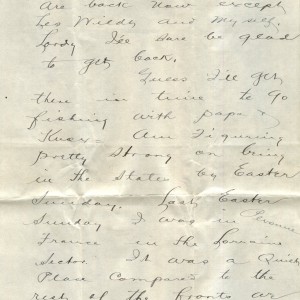 are back now except
Les Wilder and Myself.
Lordy I'll sure be glad
to get back.
Guess I'll get
there in time to go
fishing with papa &
Am Figuring
Pretty Strong on being
in the States by Easter
Sunday. Last Easter
Sunday I was in
France in the Lorraine
Sector. It was a Quiet
Place Compared to the
rest of the fronts we